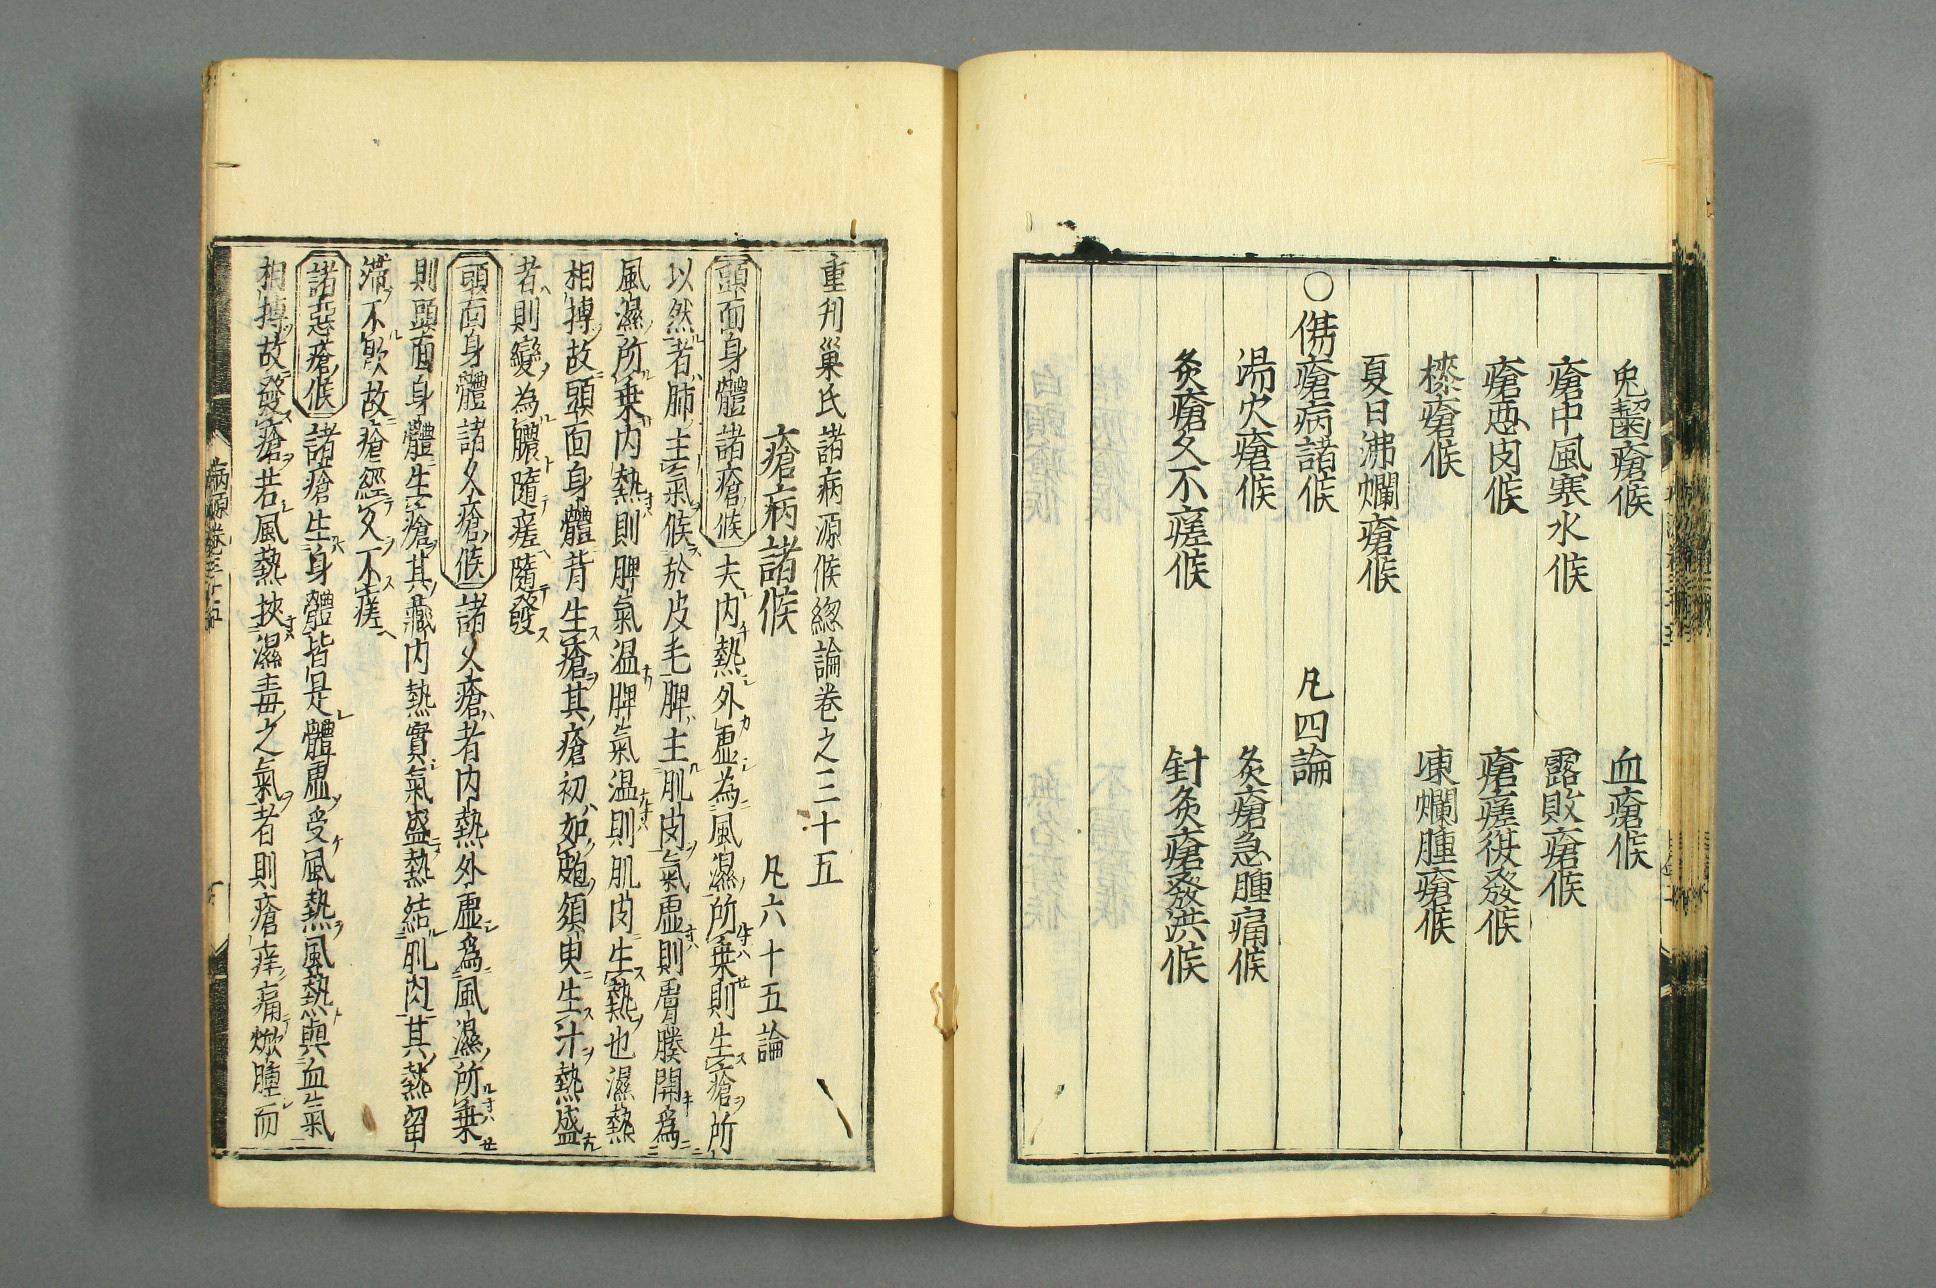 兎齧瘡候　血瘡候
瘡中風寒水候　露敗瘡候
瘡惡肉候　瘡瘥後發候
㯃瘡候　凍爛腫瘡候
夏日沸爛瘡候
○傷瘡病諸候　凡四論
湯火瘡候　灸瘡急腫痛候
灸瘡久不瘥候　針灸瘡發洪候
重刊巢氏諸病源候總論卷之三十五
瘡病諸候　凡六十五論
頭面身體諸瘡候　夫内熱外虛為風濕所乗則生瘡所
以然者肺主氣候於皮毛脾主肌肉氣虛則膚腠開為
風濕所乗内熱則脾氣温脾氣温則肌肉生熱也濕熱
相搏故頭面身體皆生瘡其瘡初如皰須臾生汁熱盛
者則變為膿隨瘥隨發
頭面身體諸久瘡候　諸久瘡者内熱外虛為風濕所乗
則頭面身體生瘡其藏内熱實氣盛熱結肌肉其熱留
滯不歇故瘡經久不瘥
諸惡瘡候　諸瘡生身體皆是體虛受風熱風熱與血氣
相搏故發瘡若風熱挾濕毒之氣者則瘡痒痛焮腫而
病源卷三十五